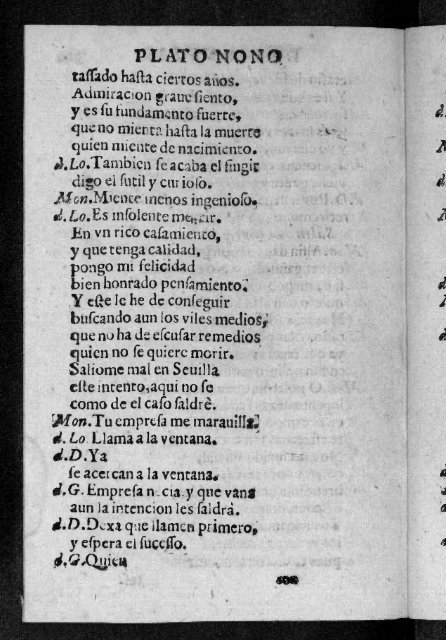 PLATO NONO
tassado hasta ciertos años.
Admiracion graue siento,
y es su fundamento fuerte,
que no mienta hasta la muerte
quien miente de nacimiento.
d.Lo.Tambien se acaba el fingir
digo el sutil y curioso.
Mon.Miente menos ingenioso.
d.Lo.Es insolente mentir.
En vn rico casamiento,
y que tenga calidad,
pongo mi felicidad
bien honrado pensamiento.
Y este le he de conseguir
buscando aun los viles medios,
que no ha de escusar remedios
quien no se quiere morir.
Saliome mal en Seuilla
este intento, aqui no se
como de el caso saldrè.
Mon.Tu empresa me marauilla.
d.Lo.Llama a la ventana.
d.D.Ya
se acercan a la ventana.
d.G.Empresa necia, y que vana
aun la intencion les saldrà.
d.D.Dexa que llamen primero,
y espera el sucesso.
d.G.Quien